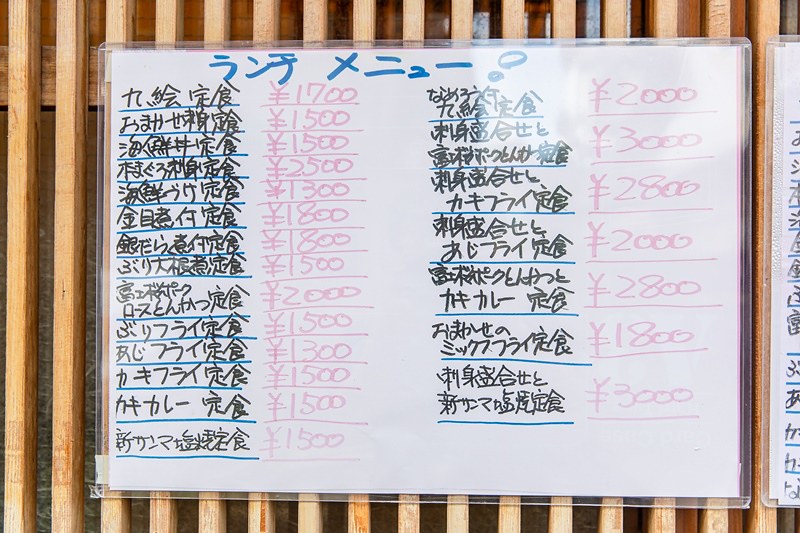 ランチ メニュー!
九絵定食 ¥1700
おまかせ刺身定食 ¥1500
海鮮丼定食 ¥1500
本まぐろ刺身定食 ¥2500
海鮮づけ定食 ¥1300
金目煮付定食 ¥1800
銀だら煮付定食 ¥1800
ぶり大根煮定食 ¥1500
富士桜ポーク
ロースとんかつ定食 ¥2000
ぶりフライ定食 ¥1500
あじフライ定食 ¥1300
カキフライ定食 ¥1500
カキカレー定食 ¥1500
新サンマ塩焼定食 ¥1500
なめろう付
九絵定食 ¥2000
刺身盛合せと
富士桜ポークとんかつ定食 ¥3000
刺身盛合せと
カキフライ定食 ¥2800
刺身盛合せと
あじフライ定食 ¥2000
富士桜ポークとんかつと
カキカレー定食 ¥2800
おまかせの
ミックスフライ定食 ¥1800
刺身盛合せと
新サンマ塩焼定食 ¥3000